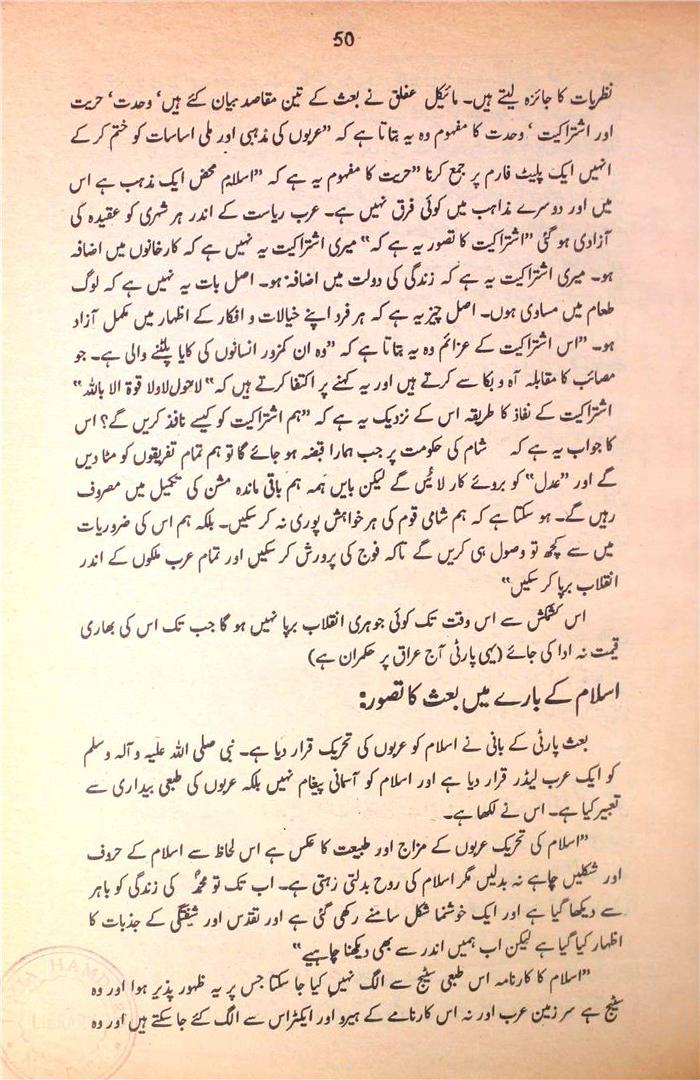 50
نظریات کا جائزہ لیتے ہیں۔ مائیکل عفلق نے بعث کے تین مقاصد بیان کئے ہیں‘ وحدت‘ حریت
اور اشتراکیت‘ وحدت کا مفہوم وہ یہ بتاتا ہے کہ "عربوں کی مذہبی اور ملی اساسات کو ختم کر کے
انہیں ایک پلیٹ فارم پر جمع کرنا "حریت کا مفہوم یہ ہے کہ "اسلام محض ایک مذہب ہے اس
میں اور دوسرے مذاہب میں کوئی فرق نہیں ہے۔ عرب ریاست کے اندر ہر شہری کو عقیدہ کی
آزادی ہو گئی "اشتراکیت کا تصور یہ ہے کہ" میری اشتراکیت یہ نہیں ہے کہ کارخانوں میں اضافہ
ہو۔ میری اشتراکیت یہ ہے کہ زندگی کی دولت میں اضافہ ہو۔ اصل بات یہ نہیں ہے کہ لوگ
طعام میں مساوی ہوں۔ اصل چیز یہ ہے کہ ہر فرد اپنے خیالات و افکار کے اظہار میں مکمل آزاد
ہو۔ "اس اشتراکیت کے عزائم وہ یہ بتاتا ہے کہ "وہ ان کمزور انسانوں کی کایا پلٹنے والی ہے۔ جو
مصائب کا مقابلہ آہ و بکا سے کرتے ہیں اور یہ کہنے پر اکتفا کرتے ہیں کہ" لاحول ولا قوۃ الا باللہ"
اشتراکیت کے نفاذ کا طریقہ اس کے نزدیک یہ ہے کہ "ہم اشتراکیت کو کیسے نافذ کریں گے؟ اس
کا جواب یہ ہے کہ شام کی حکومت پر جب ہمارا قبضہ ہو جائے گا تو ہم تمام تفریقوں کو مٹا دیں
گے اور "عدل" کو بروئے کار لائیں گے لیکن بایں ہمہ ہم باقی ماندہ مشن کی تکمیل میں مصروف
رہیں گے۔ ہو سکتا ہے کہ ہم شامی قوم کی ہر خواہش پوری نہ کر سکیں۔ بلکہ ہم اس کی ضروریات
میں سے کچھ تو وصول ہی کریں گے تاکہ فوج کی پرورش کر سکیں اور تمام عرب ملکوں کے اندر
انقلاب برپا کر سکیں"
اس کشمکش سے اس وقت تک کوئی جوہری انقلاب برپا نہیں ہو گا جب تک اس کی بھاری
قیمت نہ ادا کی جائے (یہی پارٹی آج عراق پر حکمران ہے)
اسلام کے بارے میں بعث کا تصور:
بعث پارٹی کے بانی نے اسلام کو عربوں کی تحریک قرار دیا ہے۔ نبی صلی اللہ علیہ و آلہ وسلم
کو ایک عرب لیڈر قرار دیا ہے اور اسلام کو آسمانی پیغام نہیں بلکہ عربوں کی طبعی بیداری سے
تعبیر کیا ہے۔ اس نے لکھا ہے۔
"اسلام کی تحریک عربوں کے مزاج اور طبیعت کا عکس ہے اس لحاظ سے اسلام کے حروف
اور شکلیں چاہے نہ بدلیں مگر اسلام کی روح بدلتی رہتی ہے۔ اب تک تو محمدؐ کی زندگی کو باہر
سے دیکھا گیا ہے اور ایک خوشنما شکل سامنے رکھی گئی ہے اور تقدس اور شیفتگی کے جذبات کا
اظہار کیا گیا ہے لیکن اب ہمیں اندر سے بھی دیکھنا چاہیے"
"اسلام کا کارنامہ اس طبعی سٹیج سے الگ نہیں کیا جا سکتا جس پر یہ ظہور پذیر ہوا اور وہ
سٹیج ہے سر زمین عرب اور نہ اس کارنامے کے ہیرو اور ایکٹر اس سے الگ کئے جا سکتے ہیں اور وہ